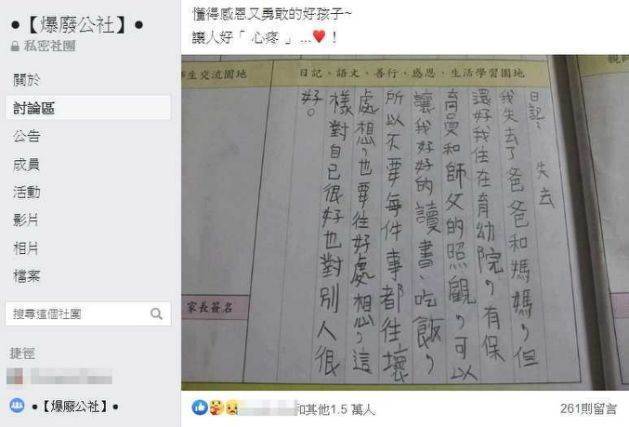 ●【爆廢公社】●
私密社團
關於
討論區
公告
成員
活動
影片
相片
檔案
搜尋這個社團
捷徑
●【爆廢公社】●
懂得感恩又勇敢的好孩子~
讓人好「 心疼 」...❤！
生交流園地
日記、語文、善行、感恩、生活學習園地
日記、 失去
我失去了爸爸和媽媽，但
還好我住在育幼院，有保
育員和師父的照顧，可以
讓我好好的讀書、吃飯，
所以不要每件事都往壞
處想，也要往好處想，這
樣對自己很好也對別人很
好。
家長簽名
和其他1.5 萬人
261則留言